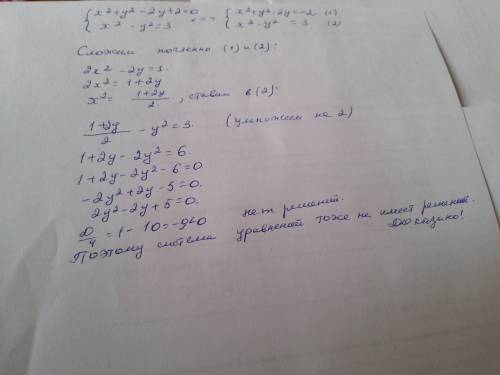 { x² + y² - 2y + 2 = 0 <=> { x² + y² - 2y = -2 (1)
{ x² - y² = 3 { x² - y² = 3 (2)
Сложим почленно (1) и (2):
2x² - 2y = 1.
2x² = 1 + 2y
x² = (1+2y)/2, ставим в (2):
(1+2y)/2 - y² = 3. (умножаем на 2)
1 + 2y - 2y² = 6.
1 + 2y - 2y² - 6 = 0.
-2y² + 2y - 5 = 0.
2y² - 2y + 5 = 0.
D/4 = 1 - 10 = -9 < 0 нет решений.
Поэтому система уравнений тоже не имеет решений.
Доказано!